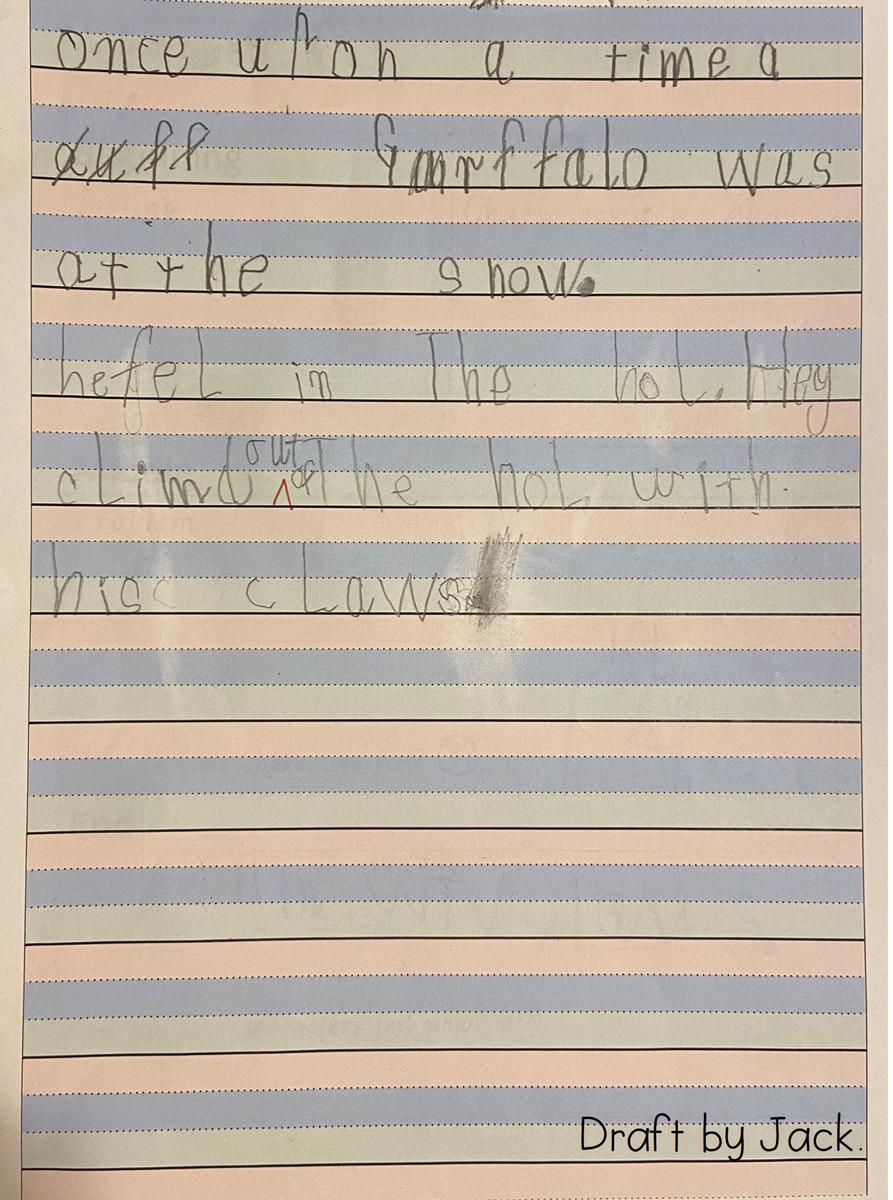 once upon a time a
Gurffalo was
at the snow.
he fel in The hol. Hey
climd out of The hol with.
his claws.
Draft by Jack.